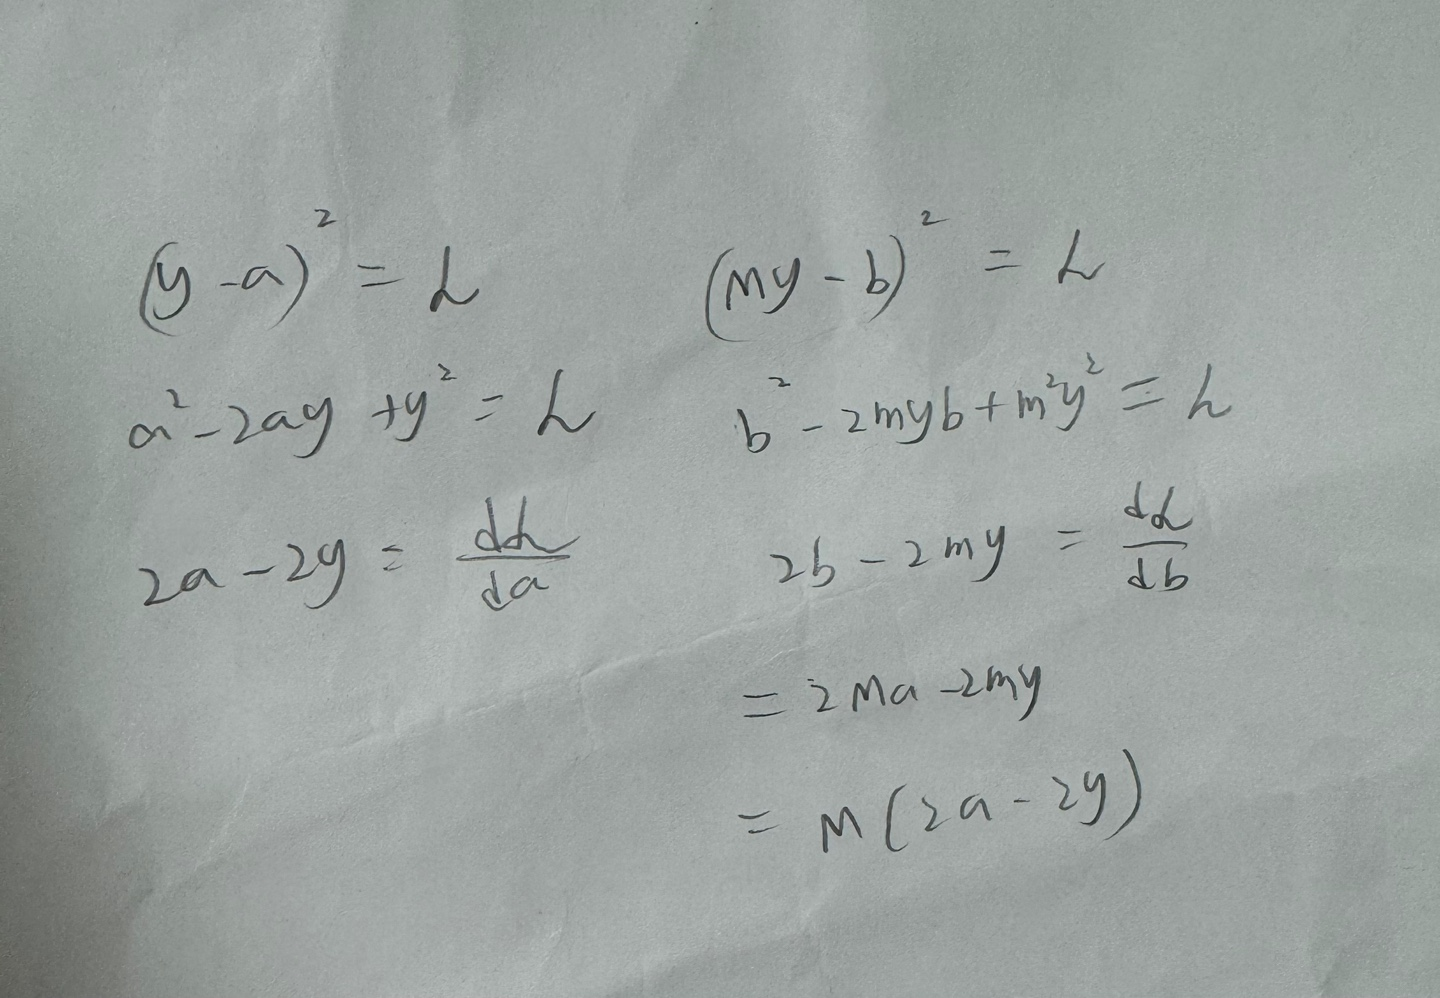 (y - a)² = L
a² - 2ay + y² = L
2a - 2y = dL/da
(my - b)² = L
b² - 2myb + m²y² = L
2b - 2my = dL/db
= 2ma - 2my
= m(2a - 2y)